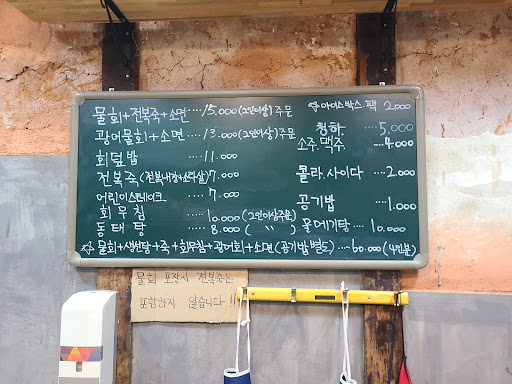 물회+전복죽+소면 ····15.000 (2인이상) 주문
광어물회+소면 ····13.000 (2인이상) 주문
회덮밥 ····11.000
전복죽 (전복내장+소라살) 7.000
어린이스테이크 ···· 7.000
회무침 ···· 10.000 (2인이상주문)
동태탕 ···· 8.000 ( 〃 )
☆ 물회+생선탕+죽+회무침+광어회+소면 (공기밥 별도) ····60.000 (4인분)
☆ 아이스박스.팩 2.000
청하. ····5.000
소주.맥주 ····4.000
콜라.사이다 ····2.000
공기밥 ····1.000
물메기탕 ···· 10.000
물회 포장시 전복죽은
포함하지 않습니다!!